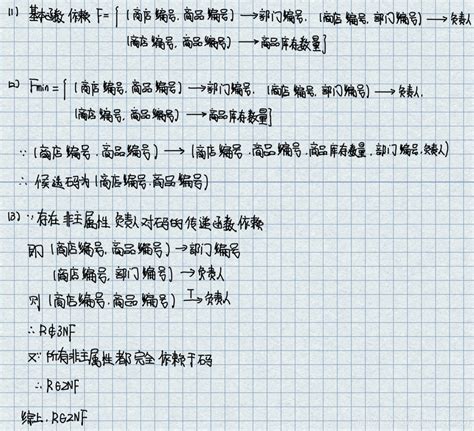 (1) 基本函数依赖 F={ (商店编号,商品编号)→部门编号, (商店编号,部门编号)→负责人
(商店编号,商品编号)→商品库存数量}
(2) Fmin={ (商店编号,商品编号)→部门编号, (商店编号,部门编号)→负责人,
(商店编号,商品编号)→商品库存数量}
∵ (商店编号,商品编号)→(商店编号,商品编号,商品库存数量,部门编号,负责人)
∴ 候选码为(商店编号,商品编号)
(3) ∵存在非主属性负责人对码的传递函数依赖
即 (商店编号,商品编号)→部门编号
(商店编号,部门编号)→负责人
则 (商店编号,商品编号) T→负责人
∴ R∉3NF
又∵所有非主属性都完全依赖于码
∴ R∈2NF
综上,R∈2NF